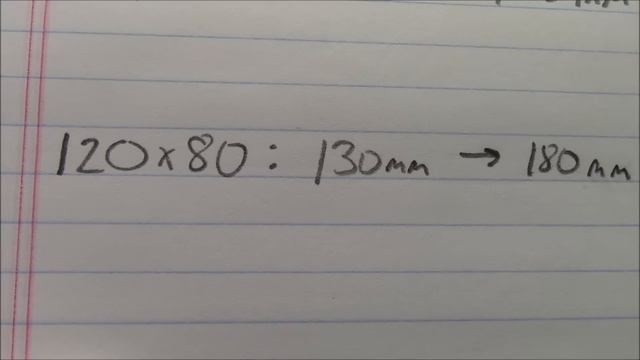 120x80: 130mm → 180mm